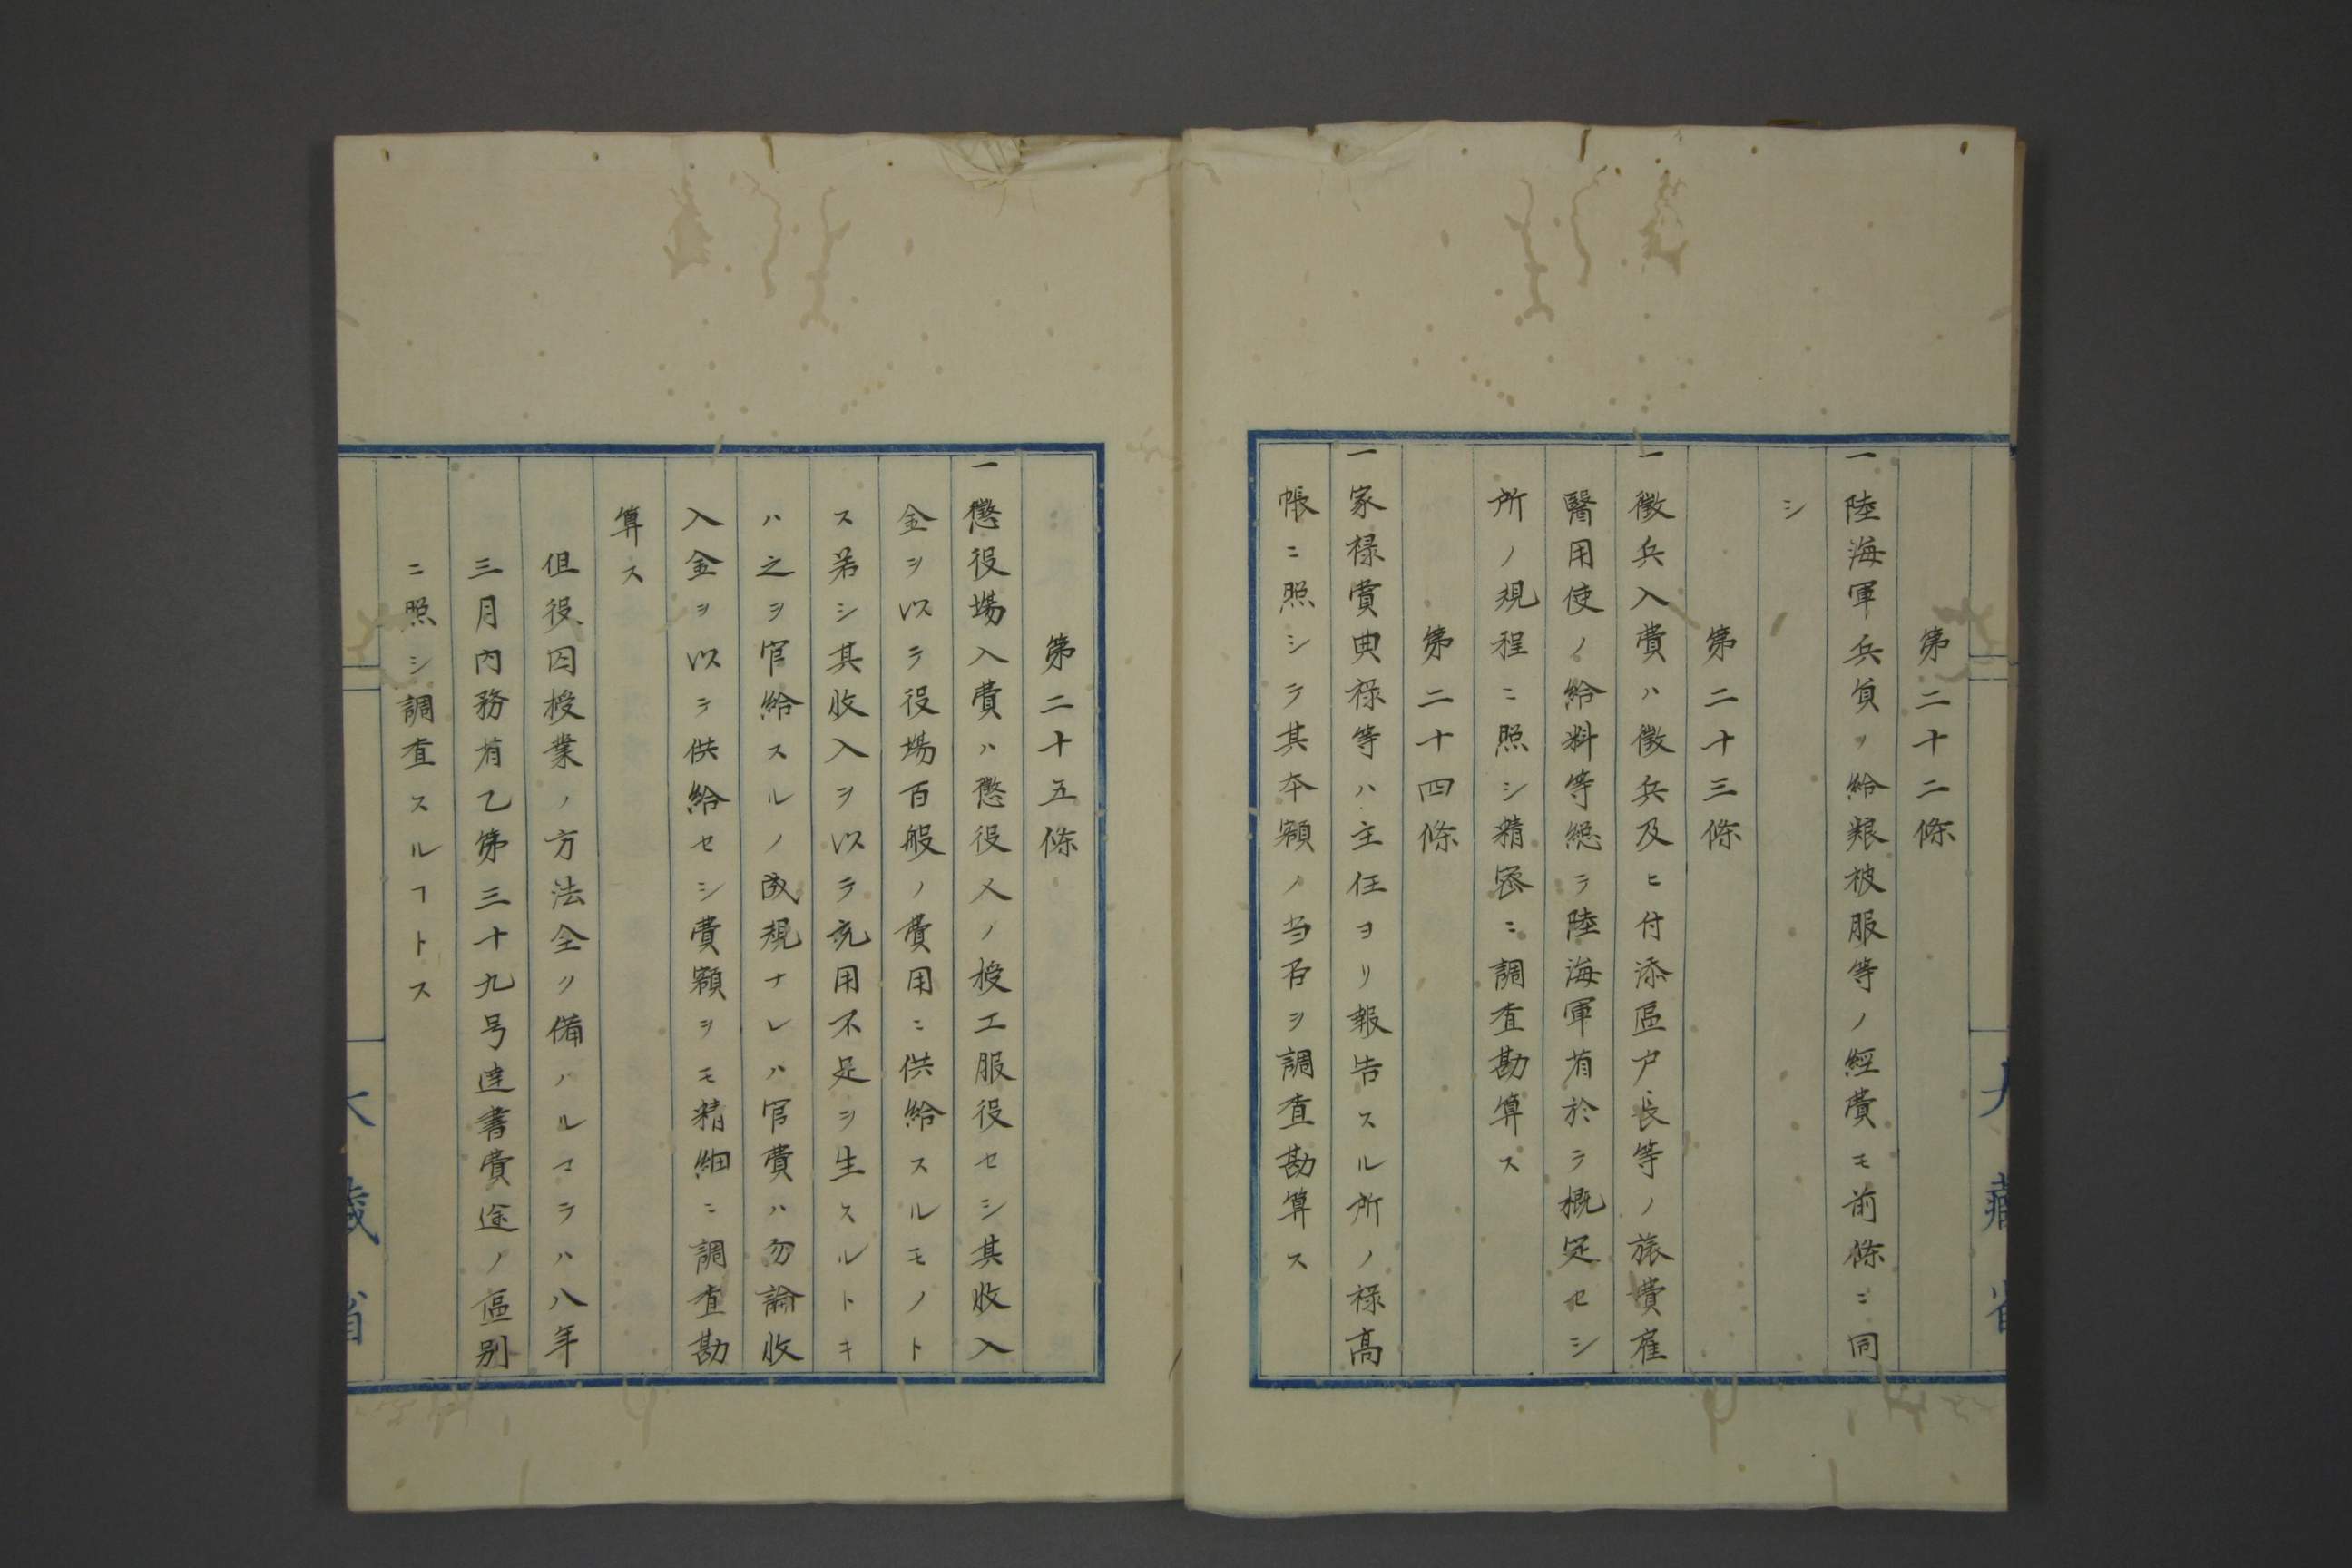 第二十二條
一陸海軍兵員ノ給粮被服等ノ經費モ前條ニ同
シ
第二十三條
一徴兵入費ハ徴兵及ヒ付添區戸長等ノ旅費雇
醫用使ノ給料等總テ陸海軍省於テ概定セシ
所ノ規程ニ照シ精密ニ調査勘算ス
第二十四條
一家禄賞典禄等ハ主任ヨリ報告スル所ノ禄高
帳ニ照シテ其本額ノ当否ヲ調査勘算ス
大藏省
第二十五條
一懲役場入費ハ懲役人ノ授工服役セシ其收入
金ヲ以テ役場百般ノ費用ニ供給スルモノト
ス若シ其收入ヲ以テ充用不足ヲ生スルトキ
ハ之ヲ官給スルノ成規ナレハ官費ハ勿論收
入金ヲ以テ供給セシ費額ヲモ精細ニ調査勘
算ス
但役囚授業ノ方法全ク備ハルマテハ八年
三月内務省乙第三十九号達書費途ノ區別
ニ照シ調査スルヿトス
大藏省